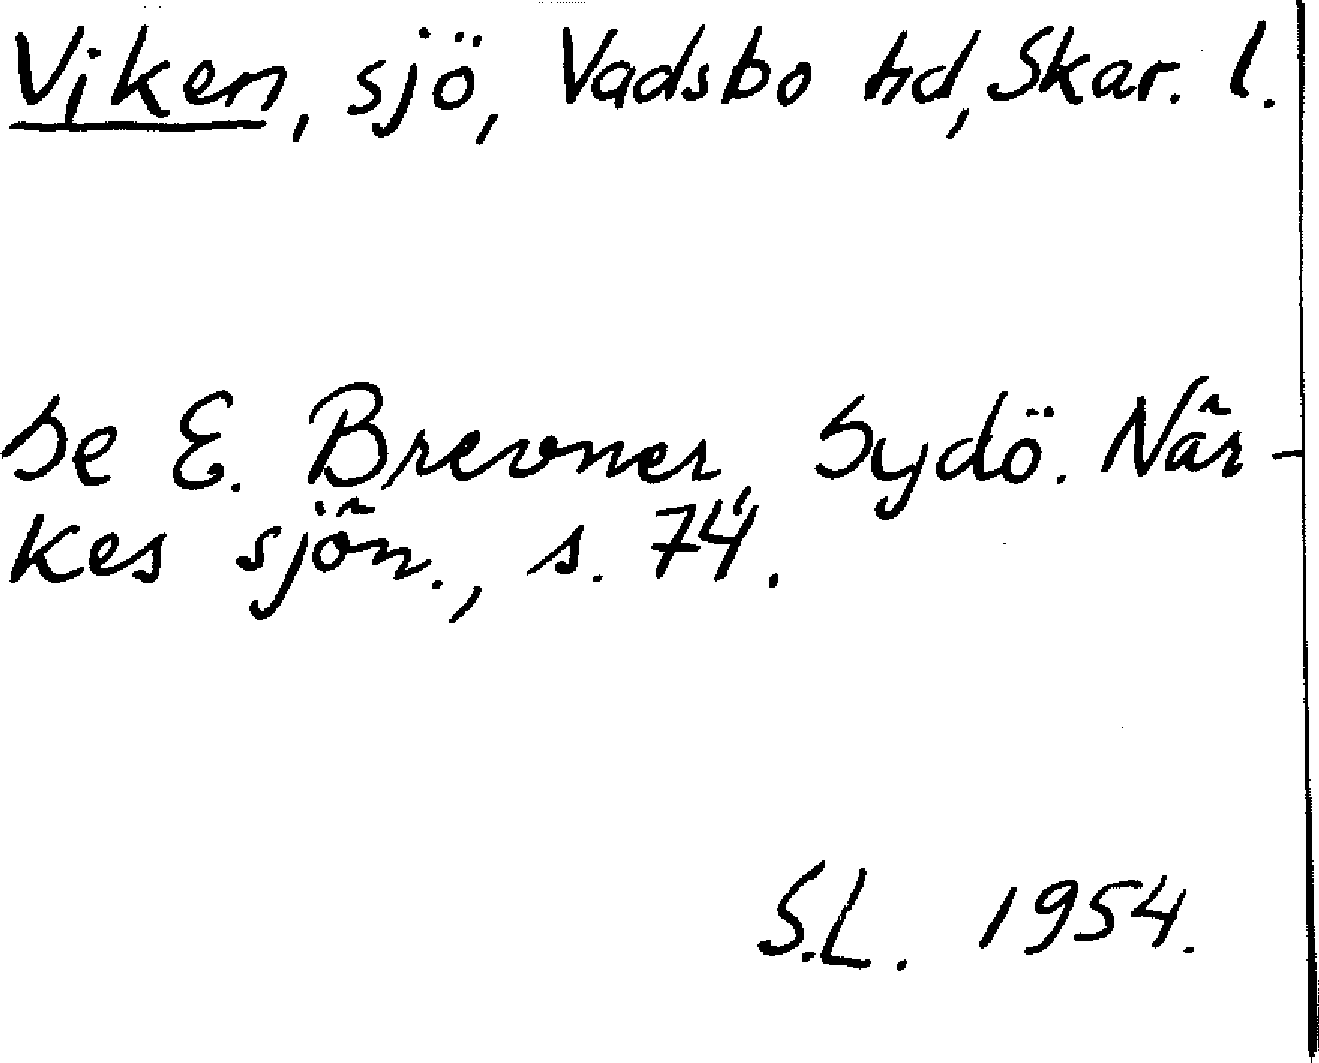 Viken, sjö, Vadsbo hd, Skar. l.
Se E. Brevner, Sydö. När-
kes sjön., s. 74.
S.L. 1954.